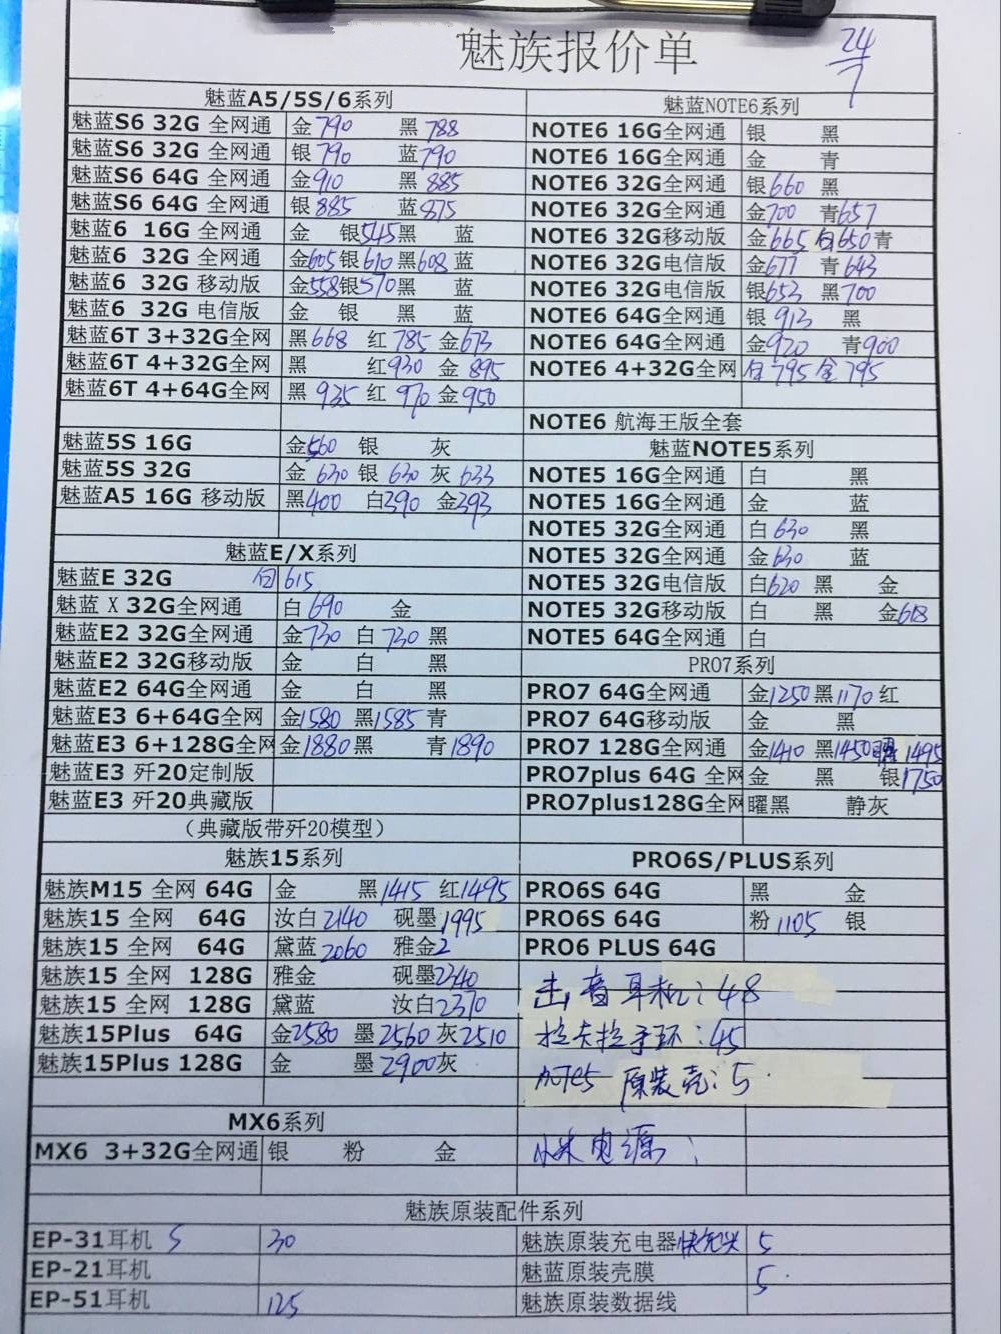 魅族报价单
24/7
魅蓝A5/5S/6系列
魅蓝S6 32G 全网通 金790 黑788
魅蓝S6 32G 全网通 银790 蓝790
魅蓝S6 64G 全网通 金910 黑885
魅蓝S6 64G 全网通 银885 蓝875
魅蓝6 16G 全网通 金 银545黑 蓝
魅蓝6 32G 全网通 金605银610黑608蓝
魅蓝6 32G 移动版 金558银570黑 蓝
魅蓝6 32G 电信版 金 银 黑 蓝
魅蓝6T 3+32G全网 黑668 红785 金673
魅蓝6T 4+32G全网 黑 红930 金895
魅蓝6T 4+64G全网 黑935 红970 金950
魅蓝5S 16G 金560 银 灰
魅蓝5S 32G 金630 银630 灰633
魅蓝A5 16G 移动版 黑400 白390 金393
魅蓝E/X系列
魅蓝E 32G 白615
魅蓝 X 32G全网通 白690 金
魅蓝E2 32G全网通 金730 白730 黑
魅蓝E2 32G移动版 金 白 黑
魅蓝E2 64G全网通 金 白 黑
魅蓝E3 6+64G全网 金1580 黑1585青
魅蓝E3 6+128G全网 金1880黑 青1890
魅蓝E3 歼20定制版
魅蓝E3 歼20典藏版
（典藏版带歼20模型）
魅族15系列
魅族M15 全网 64G 金 黑1415 红1495
魅族15 全网 64G 汝白2140 砚墨1995
魅族15 全网 64G 黛蓝2060 雅金2
魅族15 全网 128G 雅金 砚墨2340
魅族15 全网 128G 黛蓝 汝白2370
魅族15Plus 64G 金2580 墨2560灰2510
魅族15Plus 128G 金 墨2900灰
MX6系列
MX6 3+32G全网通 银 粉 金
魅蓝NOTE6系列
NOTE6 16G全网通 银 黑
NOTE6 16G全网通 金 青
NOTE6 32G全网通 银660 黑
NOTE6 32G全网通 金700 青657
NOTE6 32G移动版 金665 白650青
NOTE6 32G电信版 金677 青643
NOTE6 32G电信版 银653 黑700
NOTE6 64G全网通 银913 黑
NOTE6 64G全网通 金920 青900
NOTE6 4+32G全网 白795 金795
NOTE6 航海王版全套
魅蓝NOTE5系列
NOTE5 16G全网通 白 黑
NOTE5 16G全网通 金 蓝
NOTE5 32G全网通 白630 黑
NOTE5 32G全网通 金630 蓝
NOTE5 32G电信版 白620 黑 金
NOTE5 32G移动版 白 黑 金618
NOTE5 64G全网通 白
PRO7系列
PRO7 64G全网通 金1250黑1170红
PRO7 64G移动版 金 黑
PRO7 128G全网通 金1410 黑1450曜1495
PRO7plus 64G 全网 金 黑 银1750
PRO7plus128G全网 曜黑 静灰
PRO6S/PLUS系列
PRO6S 64G 黑 金
PRO6S 64G 粉1105 银
PRO6 PLUS 64G
击音耳机：48
拉卡拉手环：45
note5 原装壳：5
小米电源：
魅族原装配件系列
EP-31耳机 S 30 魅族原装充电器快充头 5
EP-21耳机 魅蓝原装壳膜 5
EP-51耳机 125 魅族原装数据线